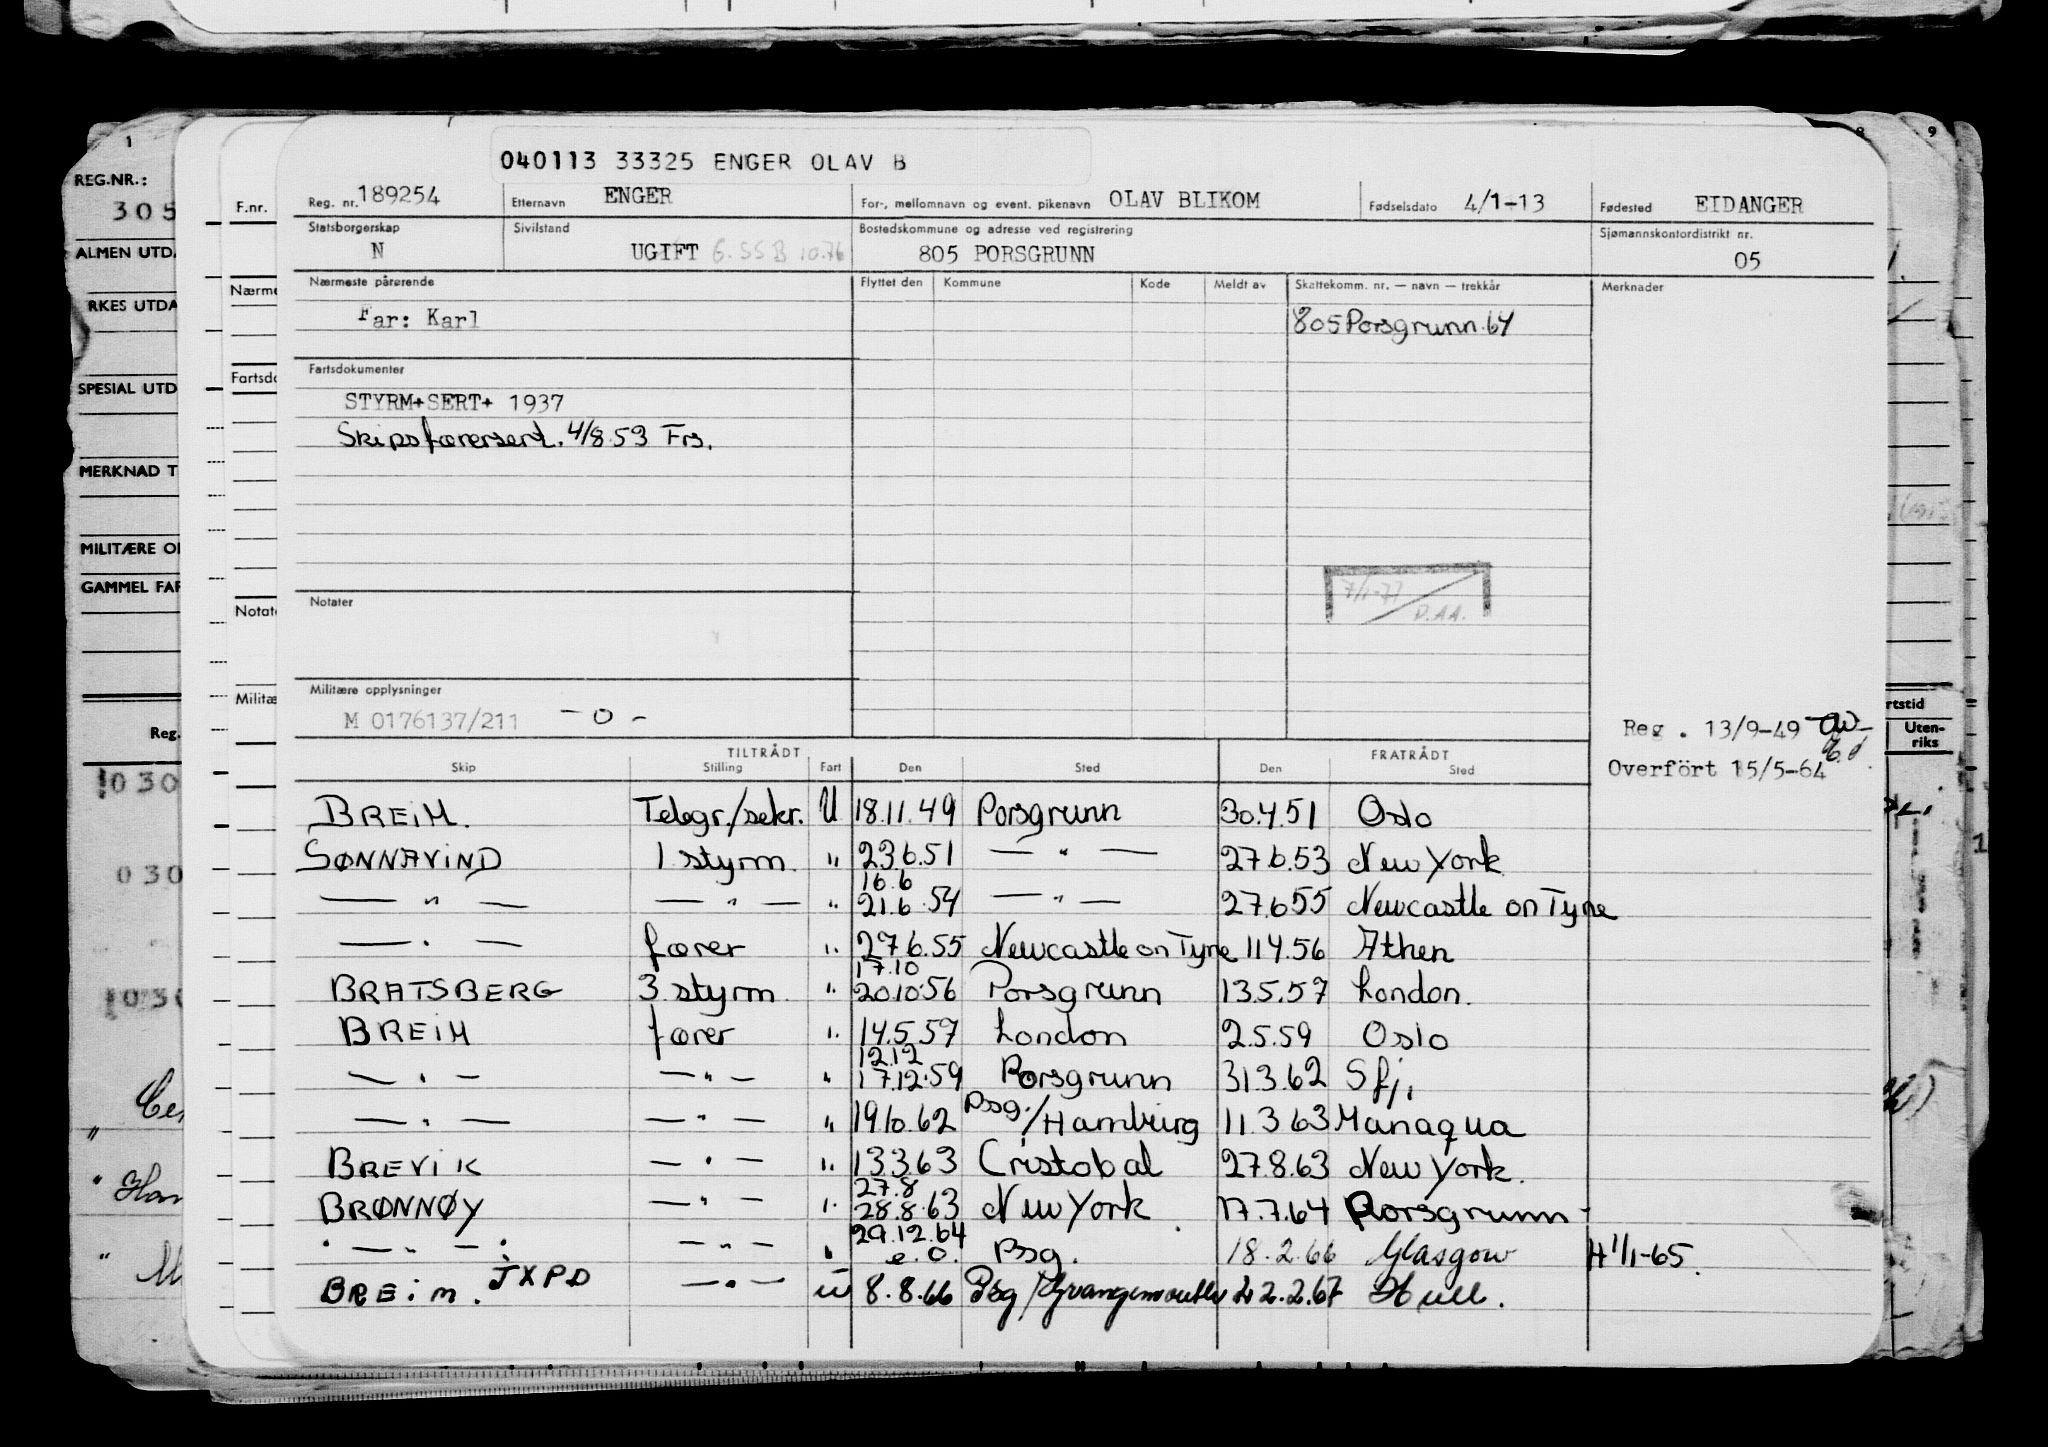 040113 33325 ENGER OLAV B
Reg. nr. 189254 Etternavn ENGER For-, mellomnavn og event. pikenavn OLAV BLIKOM Fødselsdato 4/1-13 Fødested EIDANGER
Statsborgerskap Sivilstand Bostedskommune og adresse ved registrering Sjømannskontordistrikt nr.
N UGIFT 805 PORSGRUNN 05
Nærmeste pårørende Flyttet den Kommune Kode Meldt av Skattekomm. nr. — navn — trekkår Merknader
Far: Karl 805 Porsgrunn 64
Fartsdokumenter
STYRM+SERT+ 1937
Skipsførersert. 4/8 53 Frs.
7/1-77
D.AA.
Notater
Militære opplysninger
M 0176137/211 - o -
Reg. 13/9-49
Overført 15/5-64
TILTRÅDT FRATRÅDT
Skip Stilling Fart Den Sted Den Sted
BREIM. Telegr./sekr. U 18.11.49 Porsgrunn 30.4.51 Oslo
SØNNAVIND 1 styrm. " 23.6.51 — " — 27.6.53 New York
16.6
— " — — " — " 21.6.54 — " — 27.6.55 Newcastle on Tyne
— " — fører " 27.6.55 Newcastle on Tyne 11.4.56 Athen
17.10
BRATSBERG 3 styrm. " 20.10.56 Porsgrunn 13.5.57 London.
BREIM fører " 14.5.57 London 2.5.59 Oslo
12.12
— " — — " — " 17.12.59 Porsgrunn 31.3.62 Sfj,
— " — — " — " 19.10.62 Psg./Hamburg 11.3.63 Managua
BREVIK — " — " 13.3.63 Cristobal 27.8.63 New York.
27.8
BRØNNØY — " — " 28.8.63 New York. 17.7.64 Porsgrunn
29.12.64
— " — — " — " e.o. Psg. 18.2.66 Glasgow H 1/1-65.
BREIM. JXPD — " — u 8.8.66 Psg/Grangemouth 22.2.67 Hull.
REG.NR.:
305
ALMEN UTD.
RKES UTDA
SPESIAL UTD
MERKNAD T
MILITÆRE O
GAMMEL FAR
Reg.
030
030
030
F.nr.
Nærme
Fartsdo
Notate
Militæ
1
8
9
rtstid
Uten-
riks